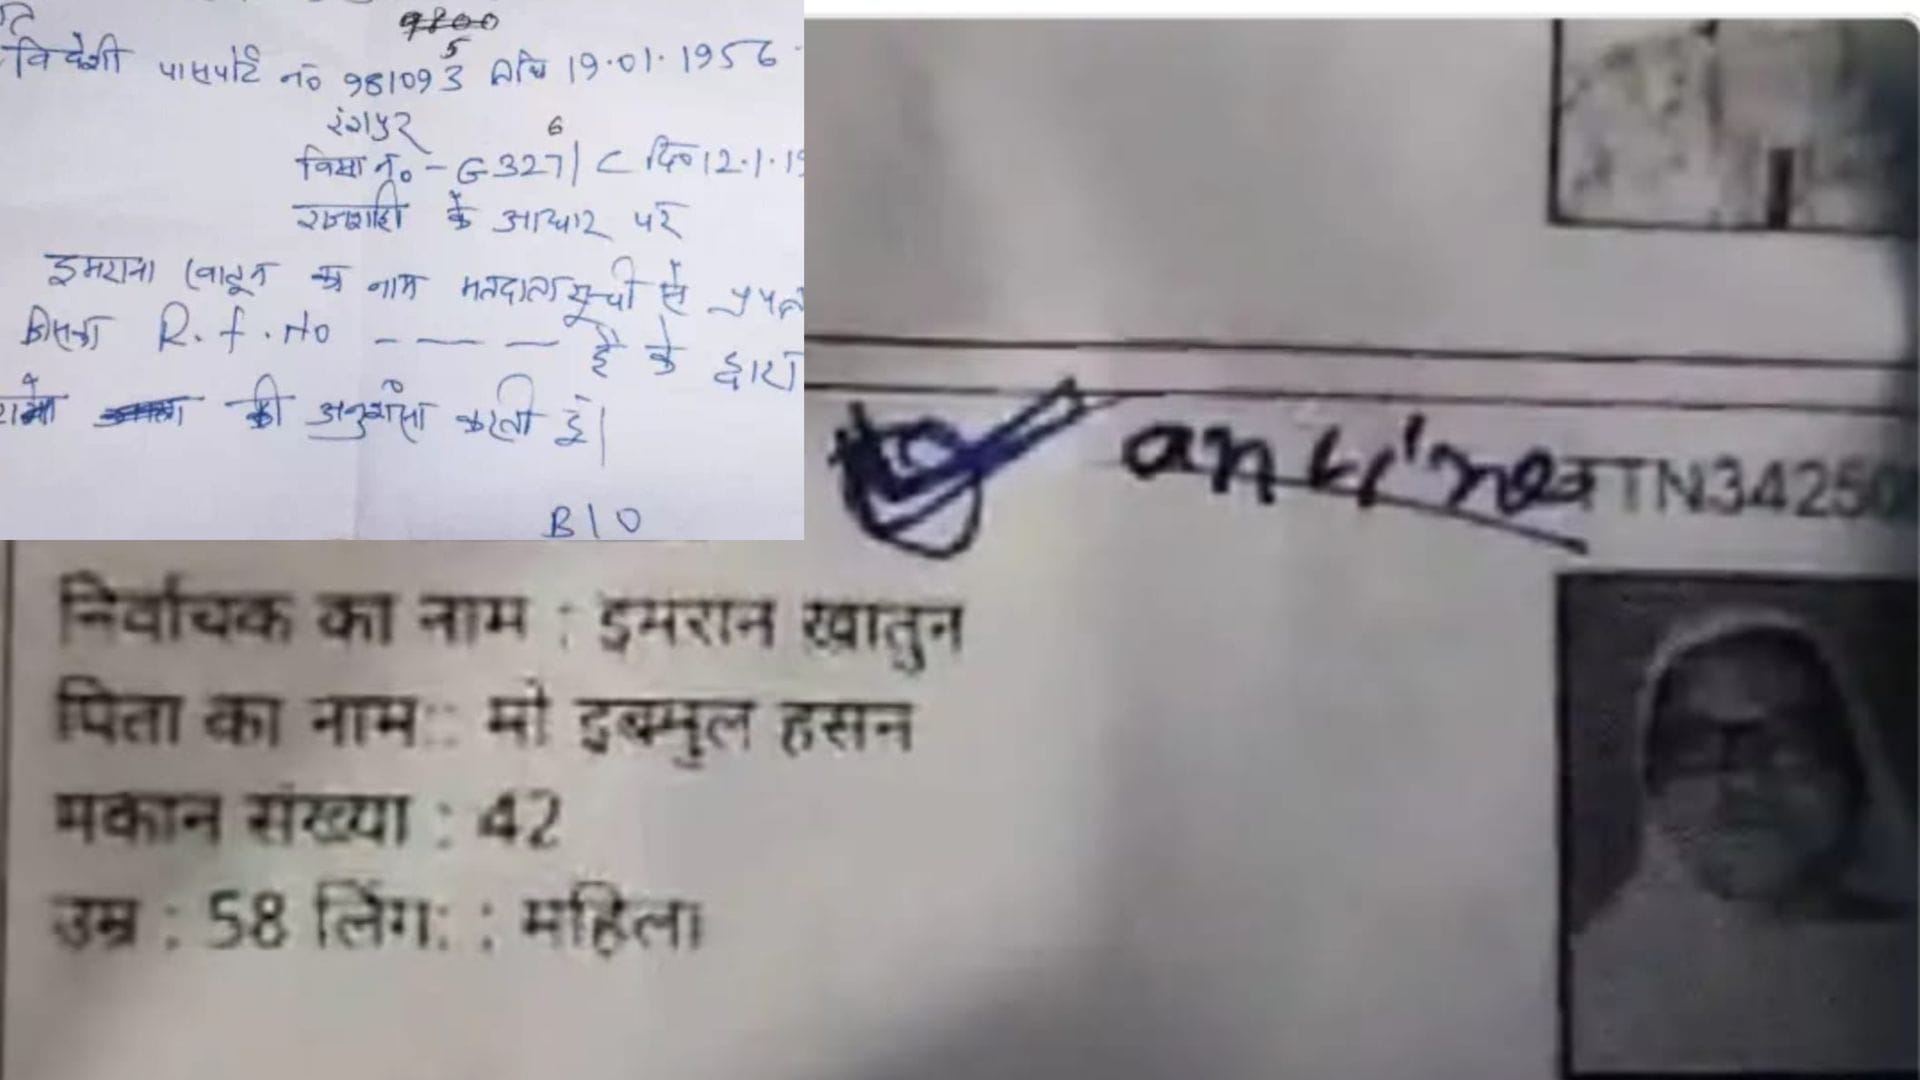 9800
विदेशी पासपोर्ट नं० 981093 तिथि 19.01.1956
5
रंगपुर
6
विसा नं० - G327/C दि० 12.1.19
राजशाही के आधार पर
इमराना खातून का नाम मतदाता सूची से
जिसका R.f.No ---- है के द्वारा
की अनुशंसा करती हूँ।
BLO
TN34250
निर्वाचक का नाम : इमरान खातुन
पिता का नाम:: मो इबमुल हसन
मकान संख्या : 42
उम्र : 58 लिंग: : महिला